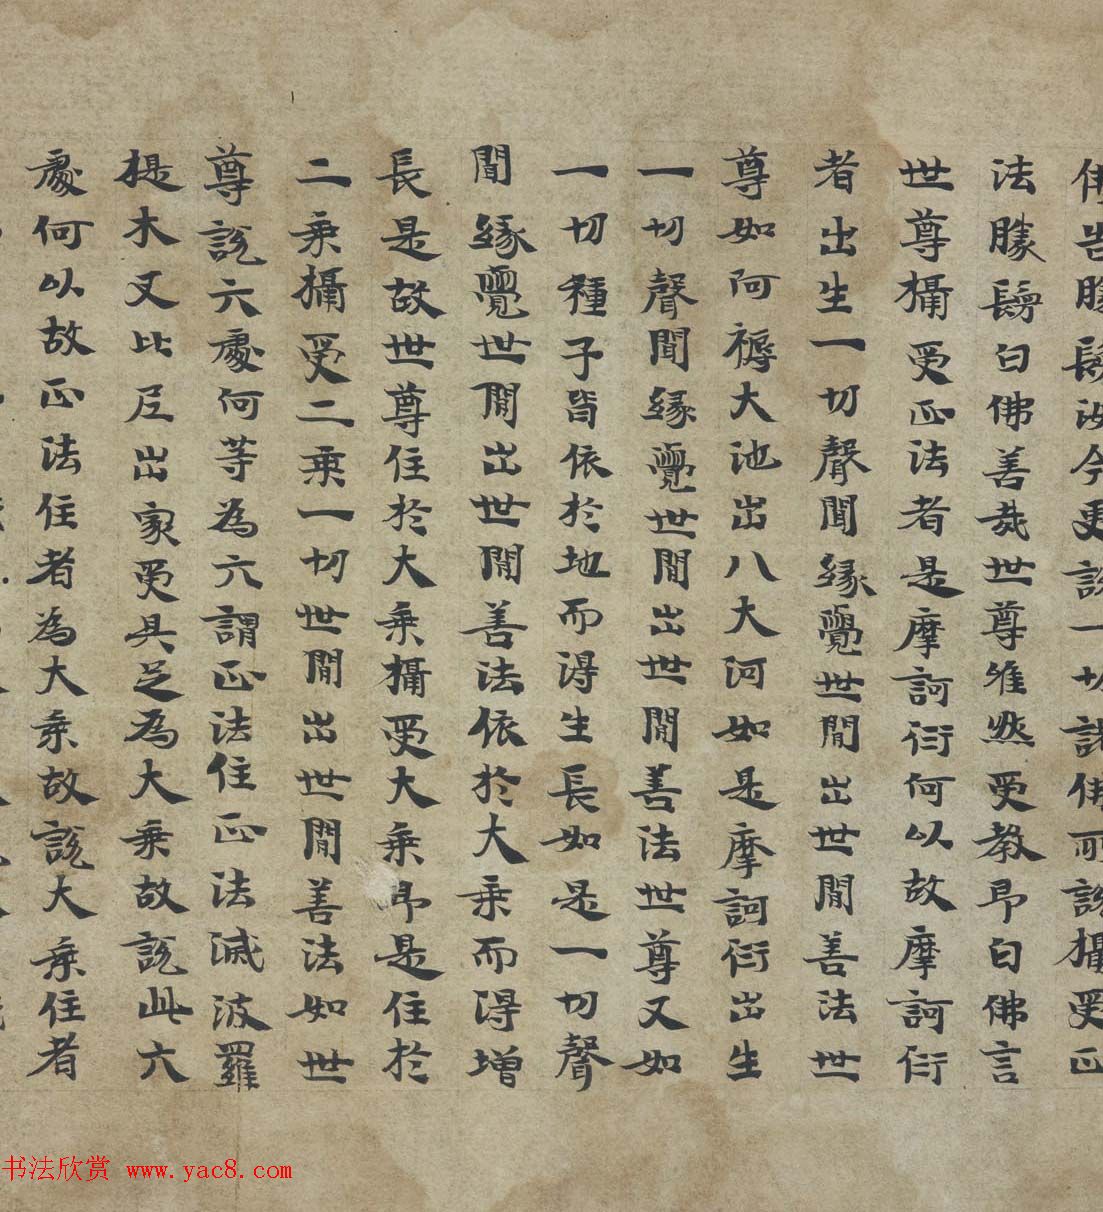 佛告勝鬘汝今更說一切諸佛所說攝受正
法勝鬘白佛善哉世尊唯然受教即白佛言
世尊攝受正法者是摩訶衍何以故摩訶衍
者出生一切聲聞緣覺世間出世間善法世
尊如阿耨大池出八大河如是摩訶衍出生
一切聲聞緣覺世間出世間善法世尊又如
一切種子皆依於地而得生長如是一切聲
聞緣覺世間出世間善法依於大乘而得增
長是故世尊住於大乘攝受大乘即是住於
二乘攝受二乘一切世間出世間善法如世
尊說六處何等為六謂正法住正法滅波羅
提木叉比尼出家受具足為大乘故說此六
處何以故正法住者為大乘故說大乘住者
书法欣赏 www.yac8.com